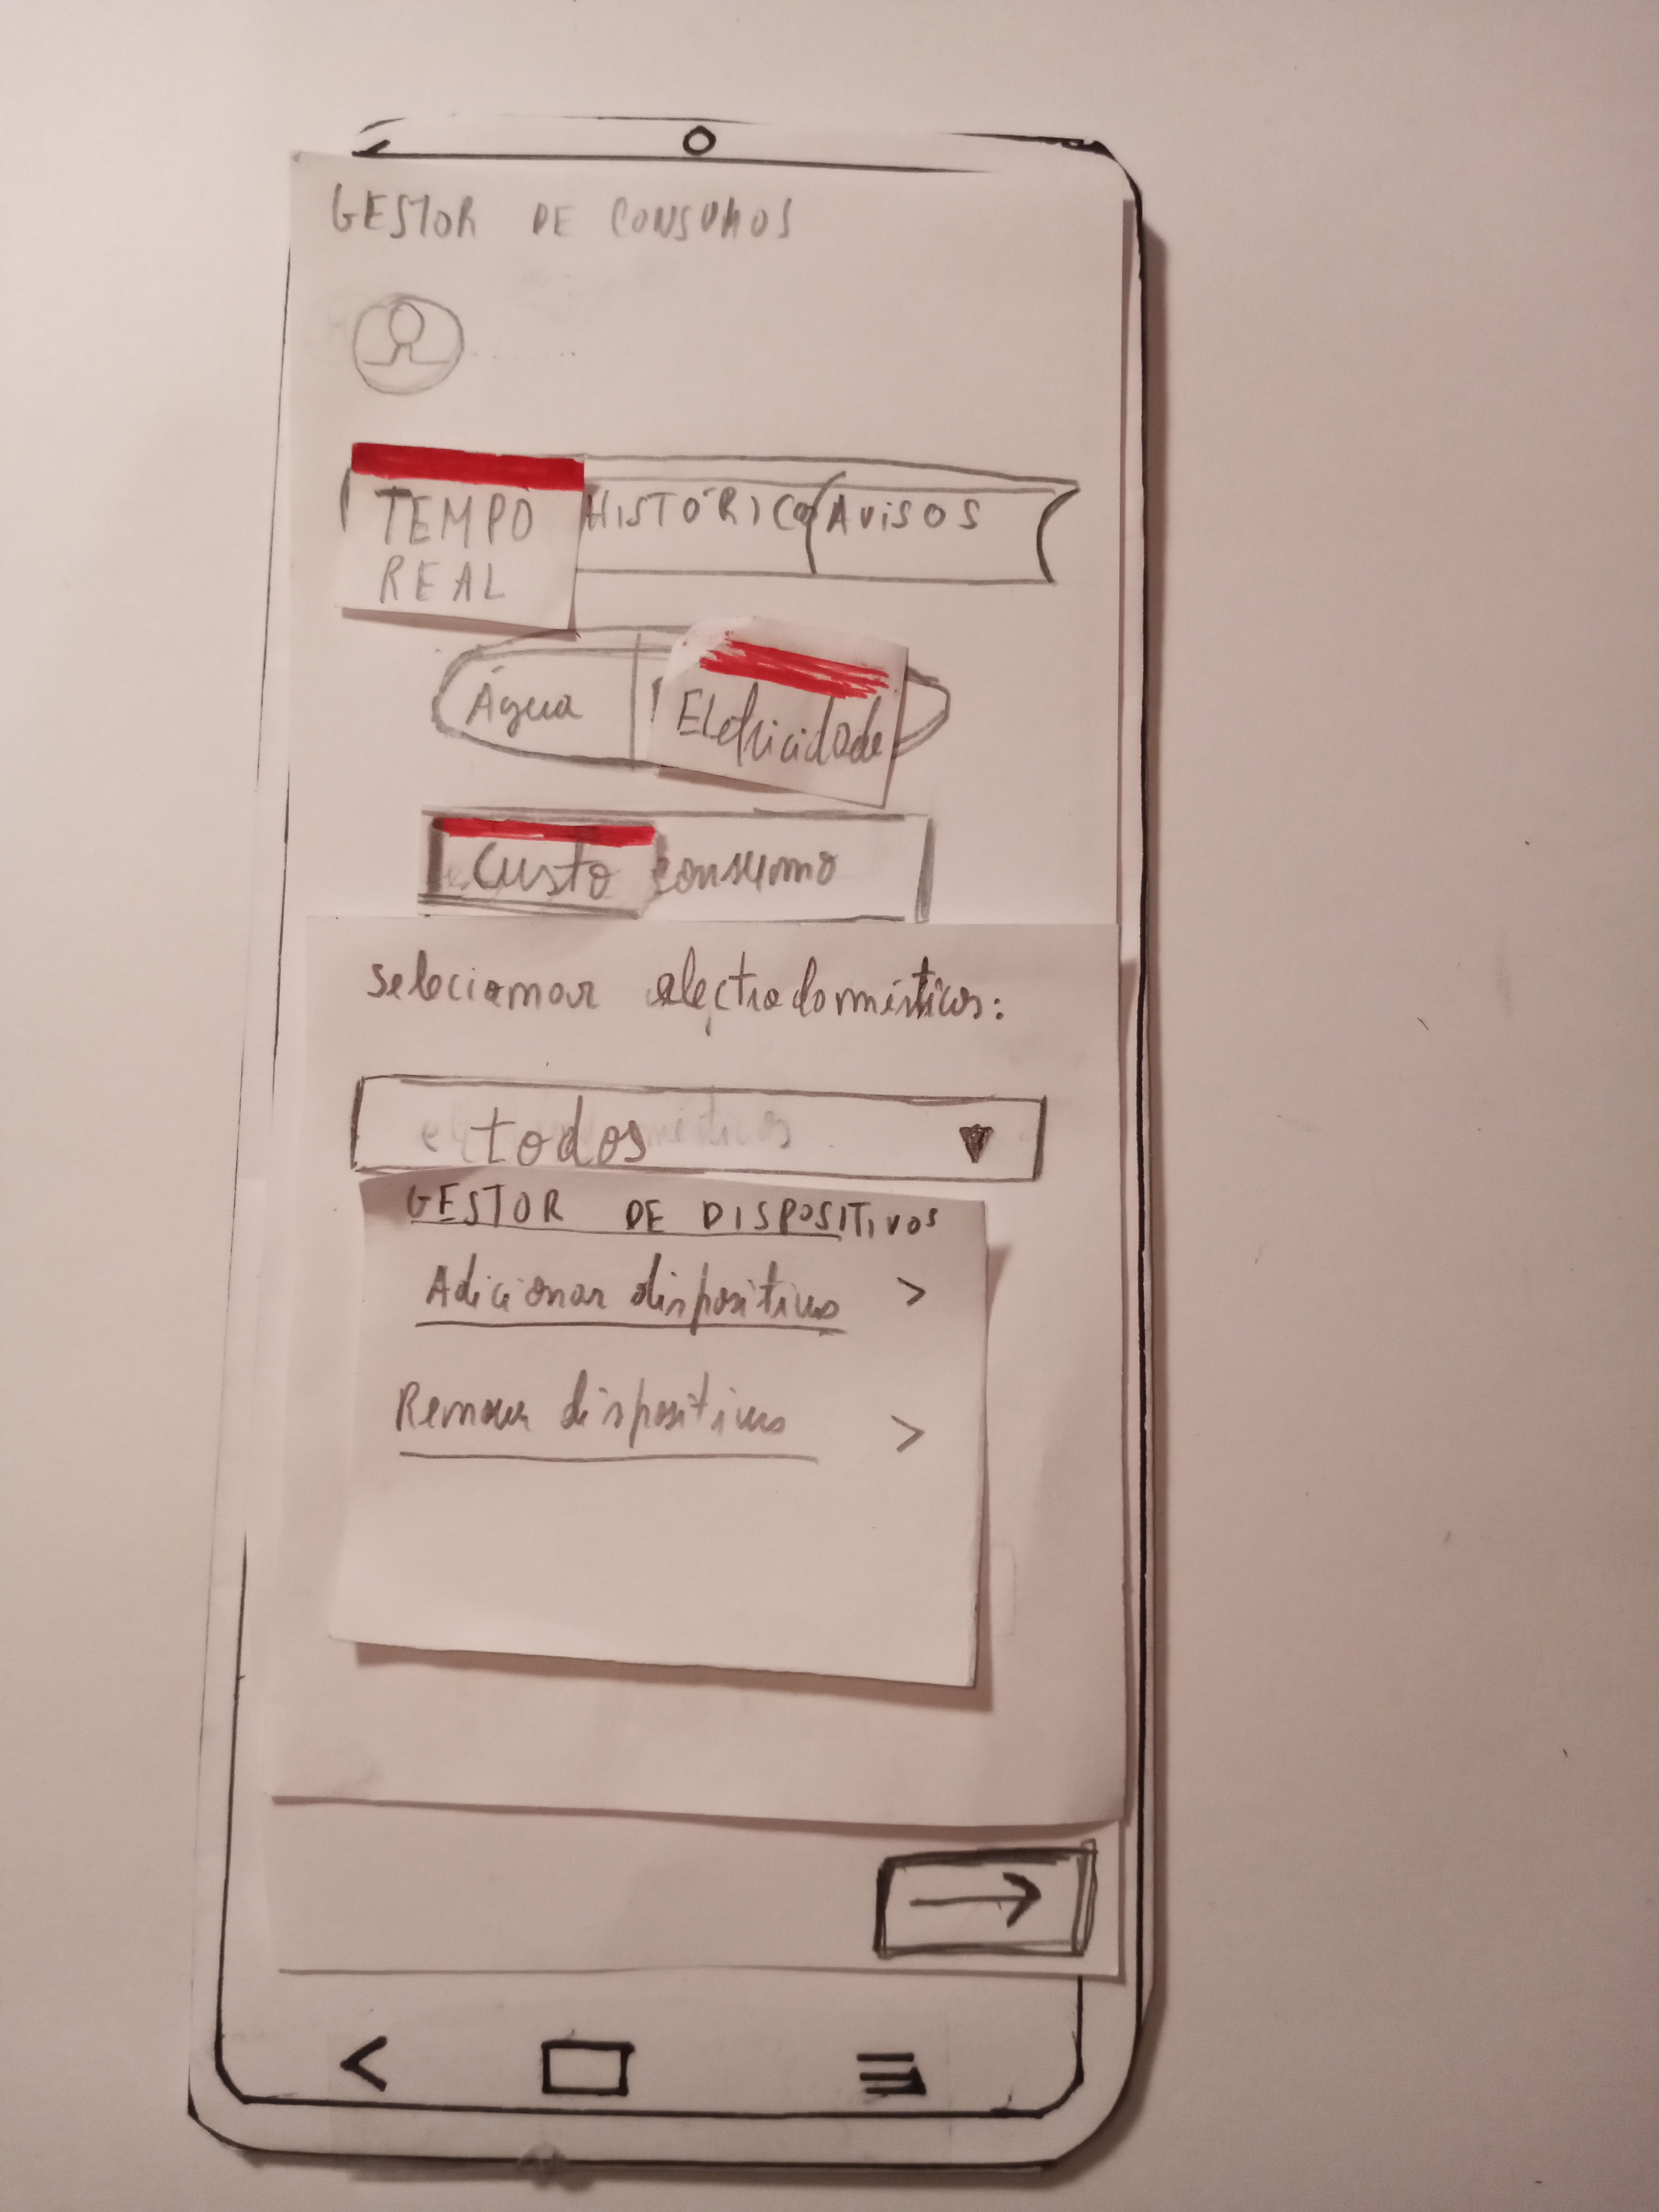 GESTOR DE CONSUMOS
TEMPO REAL
HISTÓRICO AVISOS
Água Eletricidade
Custo consumo
selecionar electrodomésticos:
todos
GESTOR DE DISPOSITIVOS
Adicionar dispositivos >
Remover dispositivos >